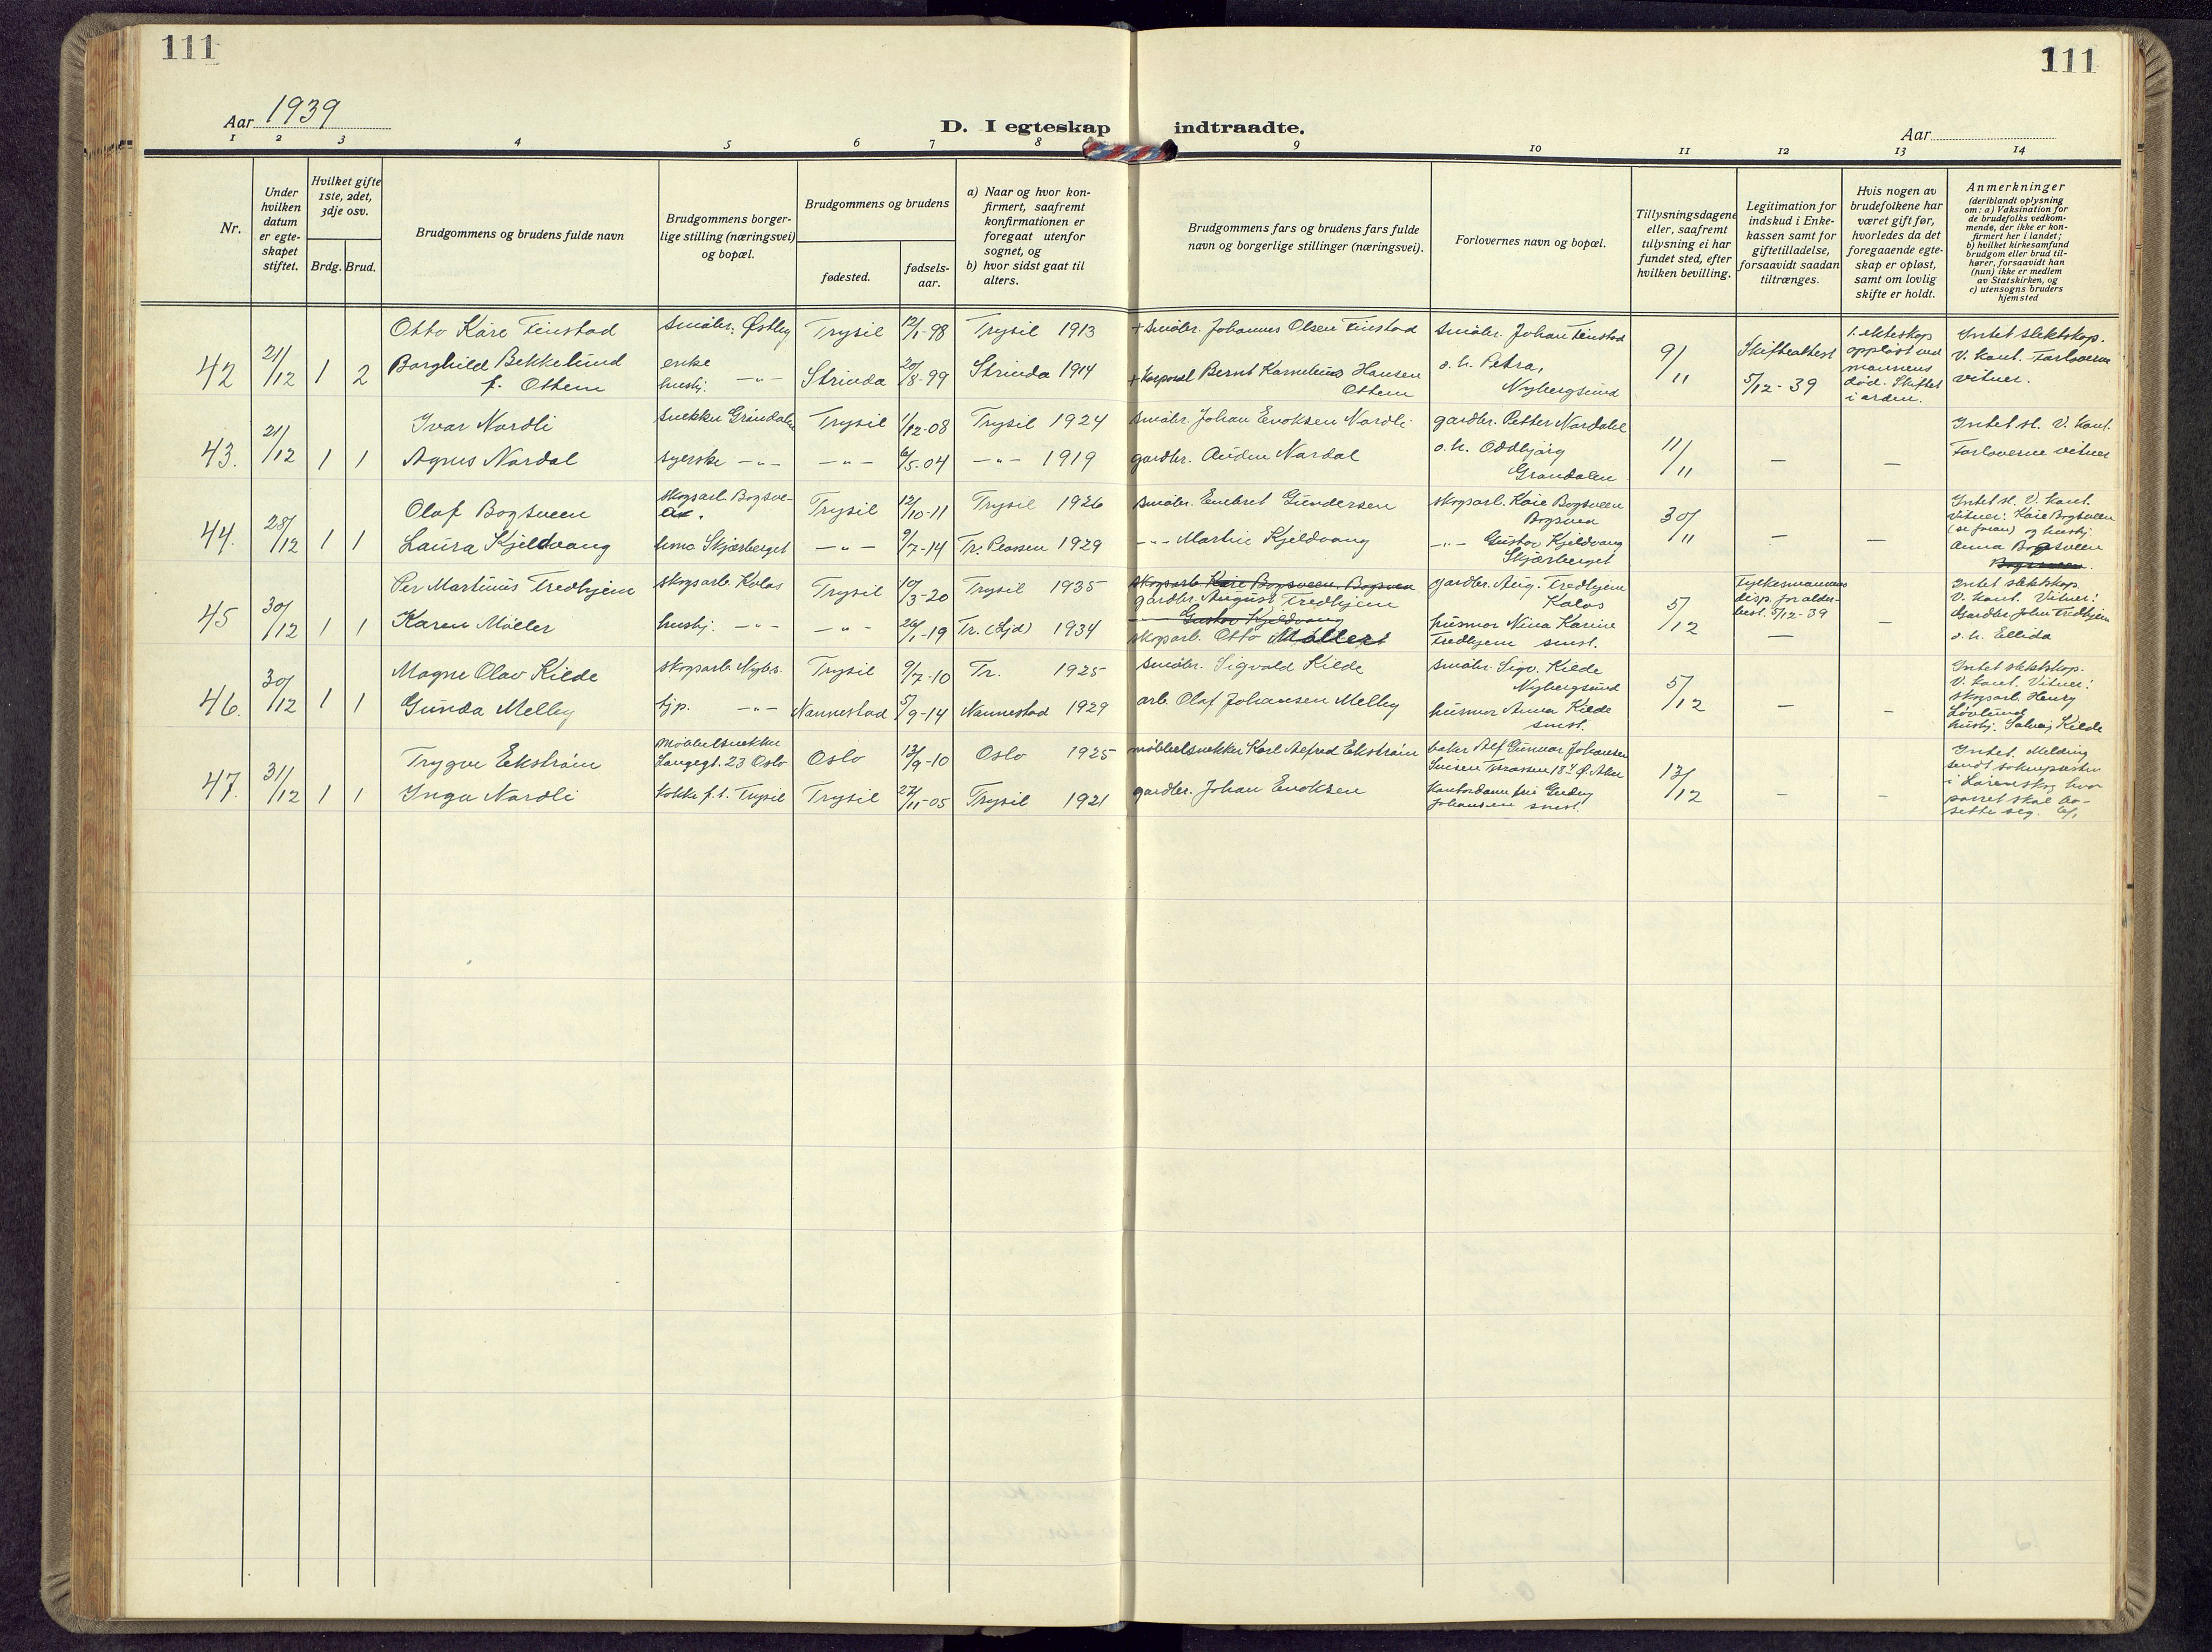 111
111
Aar 1939
D. I egteskap indtraadte.
Aar
1 2 3 4 5 6 7 8 9 10 11 12 13 14
Nr.
Under
hvilken
datum
er egte-
skapet
stiftet.
Hvilket gifte
1ste, 2det,
3dje osv.
Brdg. Brud.
Brudgommens og brudens fulde navn
Brudgommens borger-
lige stilling (næringsvei)
og bopæl.
Brudgommens og brudens
fødested.
fødsels-
aar.
a) Naar og hvor kon-
firmert, saafremt
konfirmationen er
foregaat utenfor
sognet, og
b) hvor sidst gaat til
alters.
Brudgommens fars og brudens fars fulde
navn og borgerlige stillinger (næringsvei).
Forlovernes navn og bopæl.
Tillysningsdagene
eller, saafremt
tillysning ei har
fundet sted, efter
hvilken bevilling.
Legitimation for
indskud i Enke-
kassen samt for
giftetilladelse,
forsaavidt saadan
tiltrænges.
Hvis nogen av
brudefolkene har
været gift før,
hvorledes da det
foregaaende egte-
skap er opløst,
samt om lovlig
skifte er holdt.
Anmerkninger
(deriblandt oplysning
om: a) Vaksination for
de brudefolks vedkom-
mende, der ikke er kon-
firmert her i landet;
b) hvilket kirkesamfund
brudgom eller brud til-
hører, forsaavidt han
(hun) ikke er medlem
av Statskirken, og
c) utensogns bruders
hjemsted
42 21/12 1 2
Otto Kåre Finstad
Borghild Bekkelund
f. Othem
småbr. Østby
enke
husbj. -"-
Trysil 12/1-98 Trysil 1913
Strinda 20/8-99 Strinda 1914
+ Småbr. Johannes Olsen Finstad
+ Korporal Bernt Kornelius Hansen
Othem
småbr. Johan Finstad
o. h. Petra,
Nybergsund
9/11
Skifteattest
5/12-39
1. ekteskap
oppløst ved
mannens
død. Skiftet
i orden.
Intet slektskap.
V. kont. Forloverne
vitner.
43. 21/12 1 1
Ivar Nordli
Agnes Nordal
snekker Grøndalen
syerske -"-
Trysil 1/12-08 Trysil 1924
-"- 6/5-04 -"- 1919
småbr. Johan Enoksen Nordli
gardbr. Auden Nordal
gardbr. Petter Nordahl
o. h. Oddbjørg
Grøndalen
11/11
Intet sl. V. kont.
Forloverne vitner
44. 28/12 1 1
Olaf Bogsveen
Laura Kjeldvang
skogsarb. Bogsve-
Skjærberget
Trysil 12/10-11 Trysil 1926
-"- 9/7-14 Tr. Plassen 1929
småbr. Embret Gundersen
-"- Martin Kjeldvang
skogsarb. Kåre Bogsveen
Bogsveen
-"- Gustav Kjeldvang
Skjærberget
30/11
Intet sl. V. kont.
Vitner: Kåre Bogsveen
(se foran) og husbj.
Anna Bogsveen
Bogsveen.
45 30/12 1 1
Per Martinus Fredhjem
Karen Møller
skogsarb. Kolos
husbj. -"-
Trysil 10/3-20 Trysil 1935
-"- 26/1-19 Tr. (Ljd) 1934
skogsarb. Kåre Bogsveen, Bogsveen
gardbr. August Fredhjem
Gustav Kjeldvang
skogsarb. Otto Møller
gardbr. Aug. Fredhjem
Kolos
husmor Nina Karine
Fredhjem smst.
5/12
Fylkesmannens
disp. for alder-
best. 5/12-39
Intet slektskap
V. kont. Vitner:
Gardbr. John Fredhjem
o. h. Ellida
46. 30/12 1 1
Magne Olav Kilde
Gunda Melby
skogsarb. Nybs.
tjp. -"-
Trysil 9/7-10 Tr. 1925
Nannestad 5/9-14 Nannestad 1929
småbr. Sigvald Kilde
arb. Olaf Johansen Melby
småbr. Sigv. Kilde
Nybergsund
husmor Anna Kilde
smst.
5/12
Intet slektskap.
V. kont. Vitner:
skogsarb. Henry
Løvlund
husbj. Solveig Kilde
47. 31/12 1 1
Trygve Ekstrøm
Inga Nordli
Møbbelsnekker
Langegt. 23 Oslo
kokke f. t. Trysil
Oslo 13/9-10 Oslo 1925
Trysil 27/11-05 Trysil 1921
møbbelsnekker Karl Alfred Ekstrøm
gardbr. Johan Enoksen
baker Alf Gunnar Johansen
Johansen smst.
13/12
Intet. Melding
sendt soknepresten
i Lørenskog hvor
parret skal bo-
sette seg.